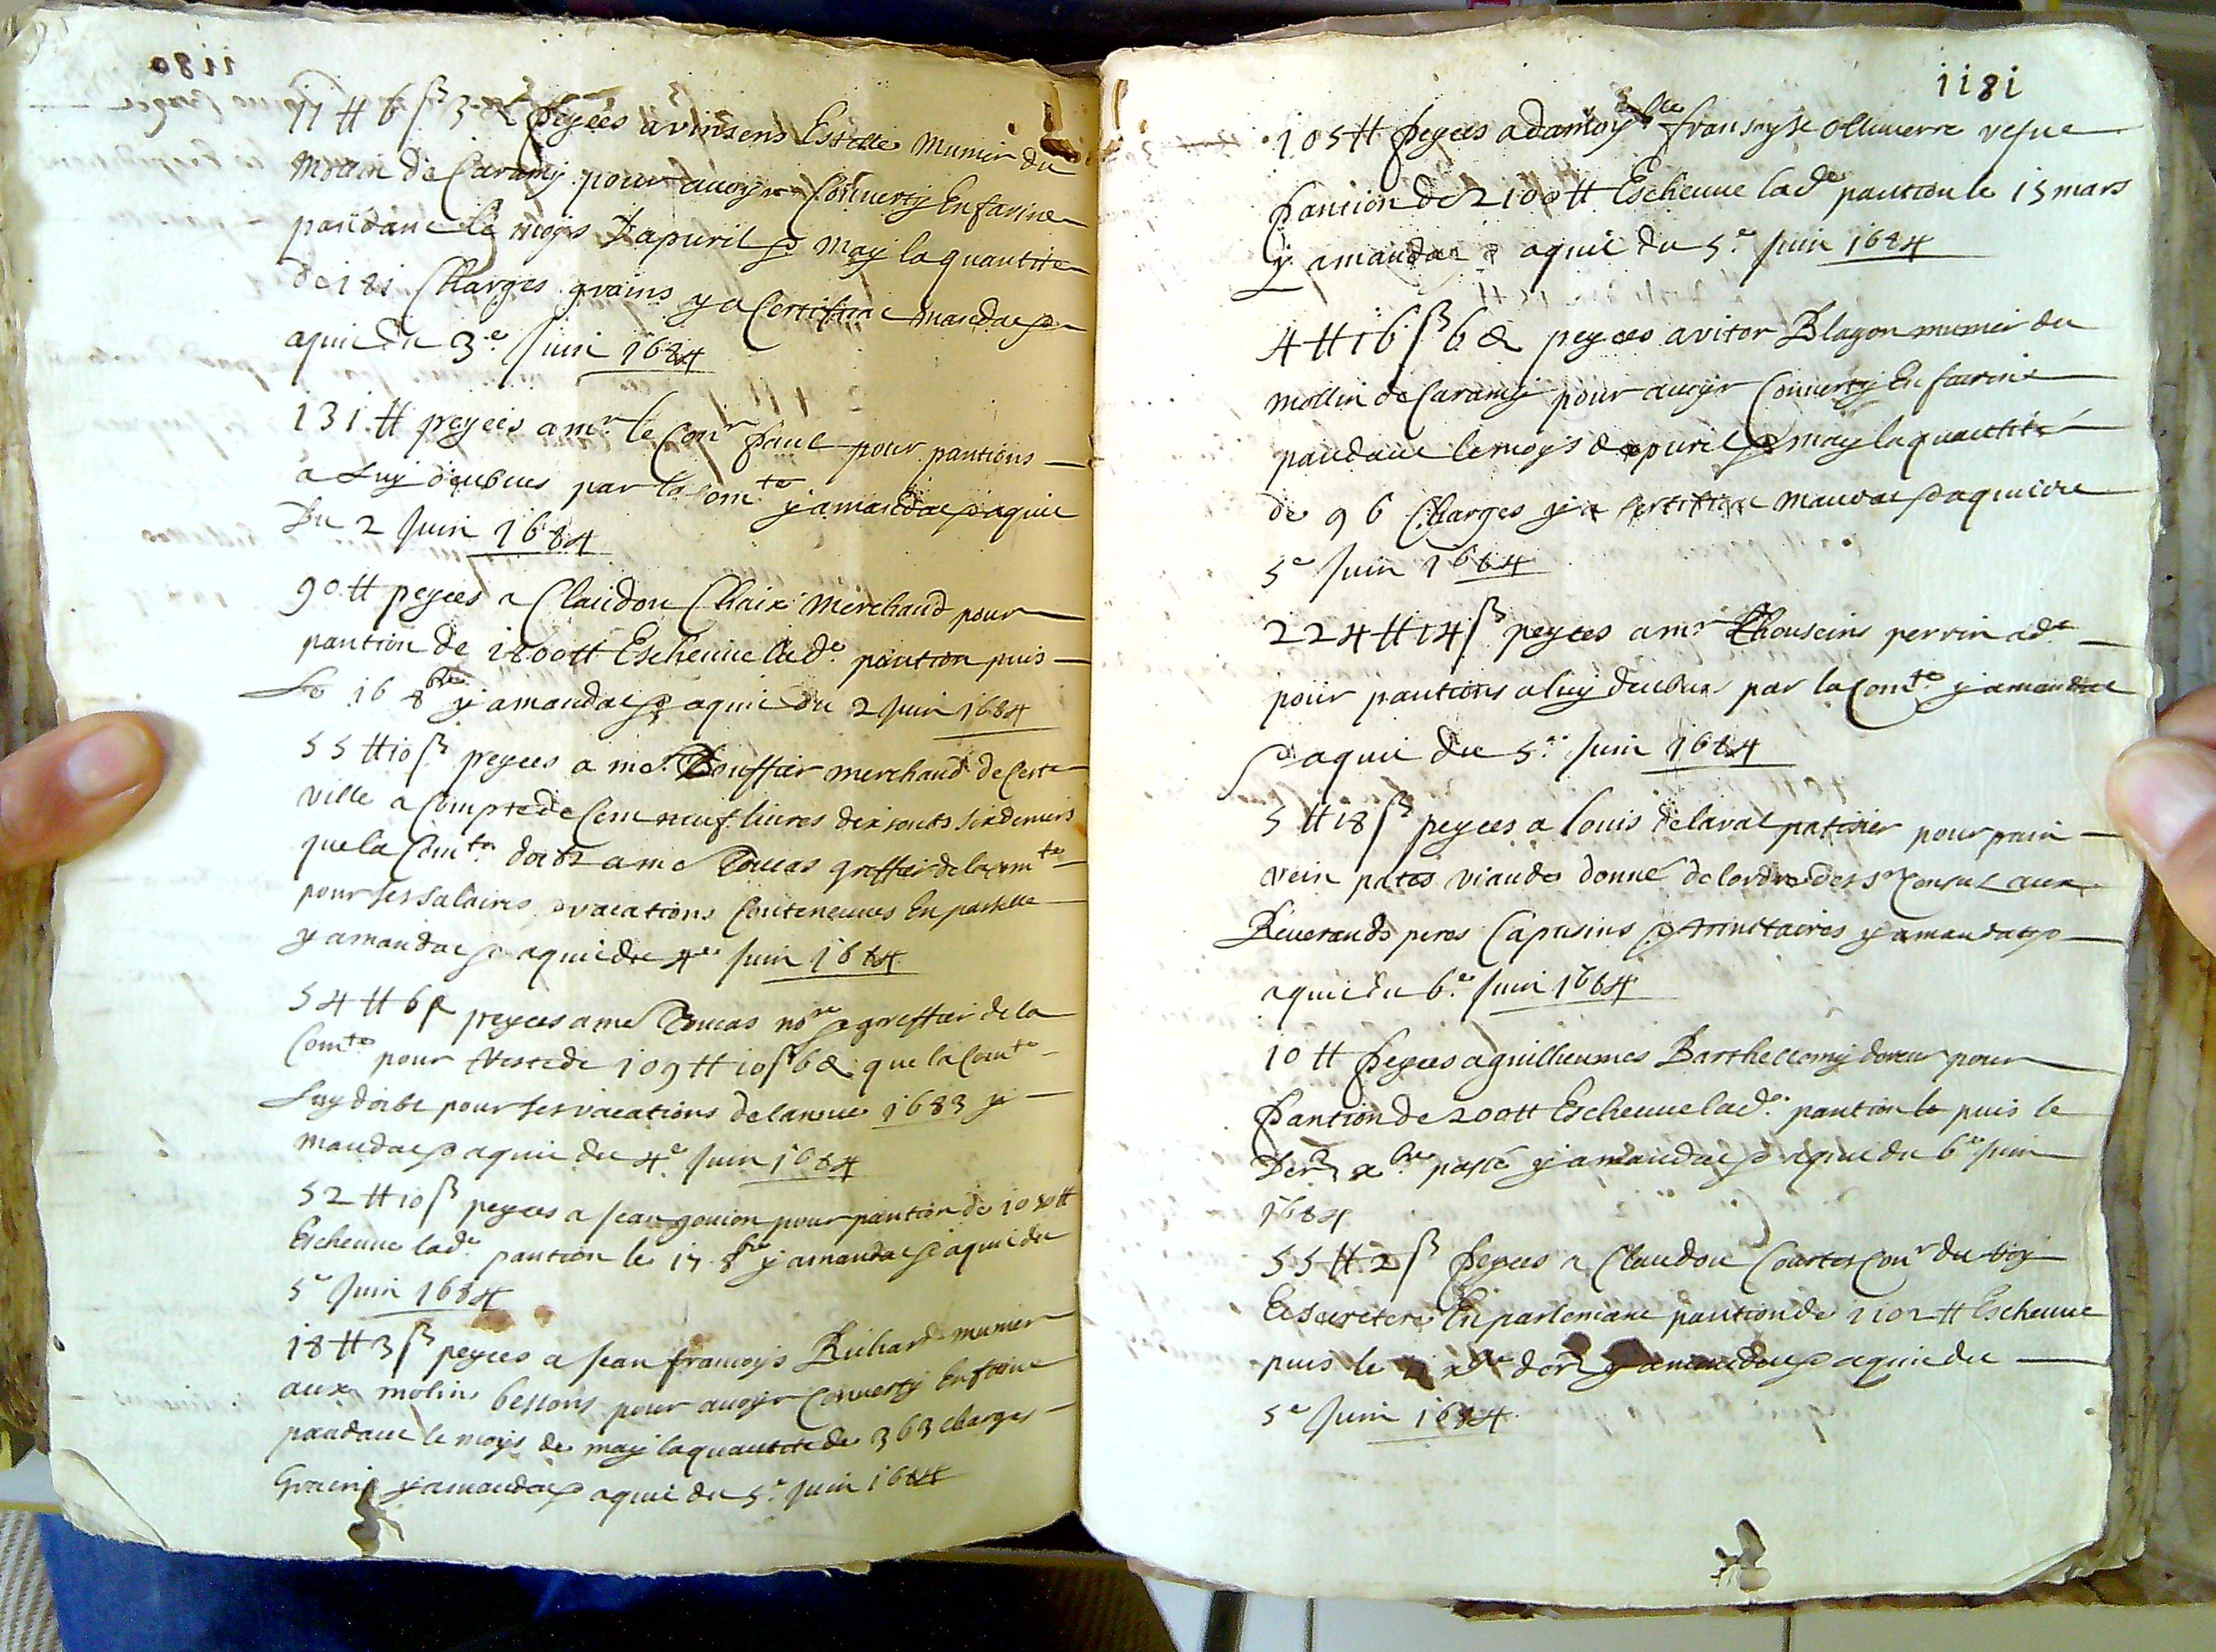 1180
11 # 6 ſ 3 & peyées a vinsens Estelle Munier du
Molin de Caramy pour auoyr Conuerty En farine
pandant le moys D'apuril & May la quantite
de 181 Charges grains y a Certificat mandat &
aquit du 3.e Juin 1684
131 # peyées a mr. le Conr paul pour pantions
a Luy deubues par la Com.te y a mandat & aquit
Du 2 Juin 1684
90 # peyées a Claudou Chaix Merchand pour
pantion de 1800 # Escheue lad.e pantion puis
Le 16 8bre y a mandat & aquit du 2 Juin 1684
55 # 10 ſ peyees a me. Bouffier merchand de Ceste
ville a Compte de Cent neuf liures dix soubs six deniers
que la Com.te doibt a me Toucas greffier de la Com.te
pour ses salaires & vacations Conteneues En parselle
y a mandat & aquit du 4.e Juin 1684
54 # 6 & peyees a me Toucas no.re & greffier de la
Com.te pour Reste de 109 # 10 ſ 6 & que la Com.te
Luy doibt pour ses vacations de lannee 1683 y a
mandat & aquit du 4.e Juin 1684
52 # 10 ſ peyees a Jean gouion pour pantion de 1050 #
Escheue lad.e pantion le 17 8bre y a mandat & aquit du
5.e Juin 1684
18 # 3 ſ peyees a Jean francoys Richard munier
aux molins bessons pour auoyr Conuerty En farine
pandant le moys de may la quantite de 363 charges
Grains y a mandat & aquit du 5.e Juin 1684
1181
105 # peyees a damoy.lle fransoyse Olliuierre vefue
pantion de 2100 # Escheue lad.e pantion le 15 mars
y a mandat & aquit du 5.e Juin 1684
4 # 16 ſ 6 & peyees a vitor Blagon munier du
mollin de Caramy pour auoyr Conuerty En farine
pandant le moys d'apuril & may la quantité
de 96 Charges y a Certificat mandat & aquit du
5.e Juin 1684
224 # 14 ſ peyees a mr. perrin ad.t
pour pantions a luy deubues par la Com.te y a mandat
& aquit du 5.e Juin 1684
5 # 18 ſ peyees a Louis delaval patisier pour pain
vein pates viande donné de lordre des srs Consuls aux
Reuerands peres Capusins & trinitaires y a mandat &
aquit du 6.e Juin 1684
10 # peyees a guilheumes Barthellemy doreur pour
pantion de 200 # Escheue lad.e pantion le puis le
Der. xbre passé y a mandat & aquit du 6.e Juin
1684
55 # 2 ſ peyees a Claudou Courtes Conr du Roy
Et Secretere En parlemant pantion de 1102 # Escheue
puis le xbre der. y a mandat & aquit du
5.e Juin 1684